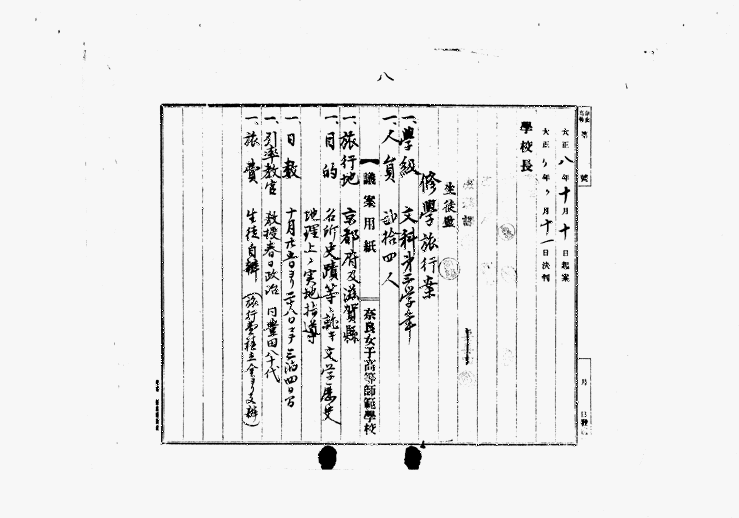 八
第 號
大正八年十月十日起案
大正〃年〃月十一日決判
學校長
生徒監
修學旅行案
一、學級 文科第三學年
一、人員 弐拾四人
【議案用紙】
奈良女子高等師範學校
一、旅行地 京都府及滋賀縣
一、目的 名所史蹟等ニ就キ文学歴史
地理上ノ実地指導
一、日数 十月廿五日ヨリ二十八日マデ三泊四日間
一、引率教官 教授春日政治 同豊田八十代
一、旅費 生徒自辨(旅行費積立金ヨリ支辨)